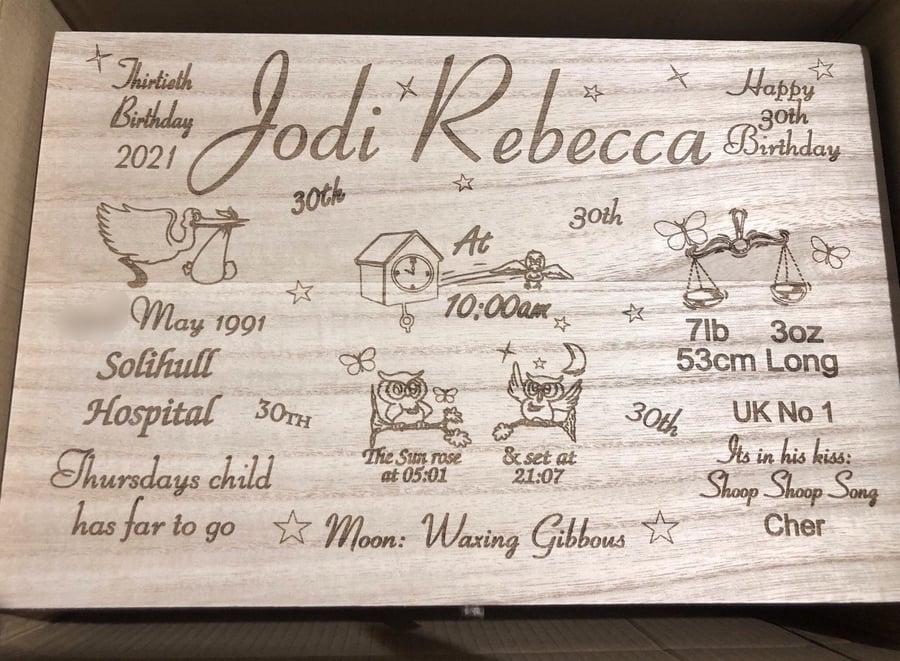 Thirtieth
Birthday
2021
Jodi Rebecca
Happy
30th
Birthday
30th
30th
At
10:00am
May 1991
Solihull
Hospital
30TH
Thursdays child
has far to go
The Sun rose
at 05:01
& set at
21:07
Moon: Waxing Gibbous
7lb 3oz
53cm Long
30th
UK No 1
Its in his kiss:
Shoop Shoop Song
Cher